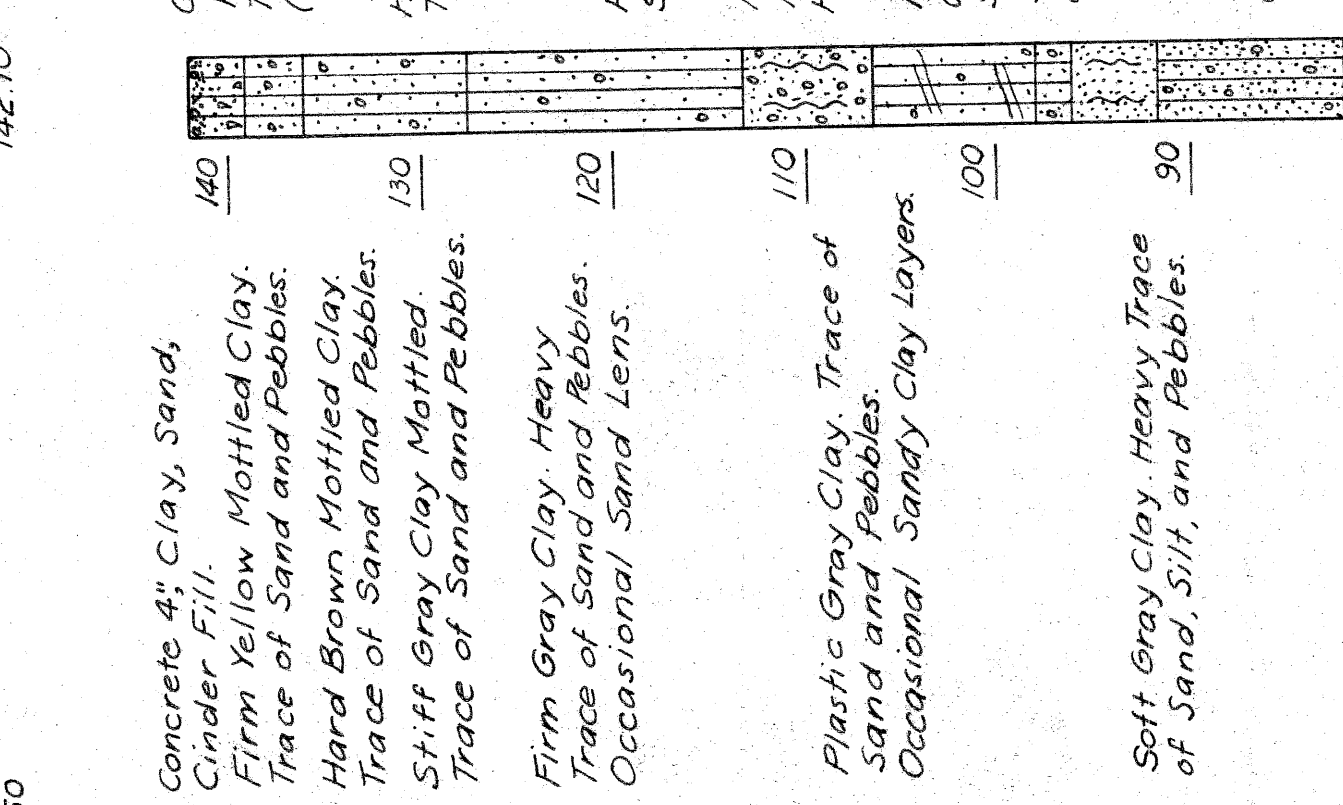 Concrete 4", Clay, Sand,
Cinder Fill.
Firm Yellow Mottled Clay.
Trace of Sand and Pebbles.
Hard Brown Mottled Clay.
Trace of Sand and Pebbles.
Stiff Gray Clay Mottled.
Trace of Sand and Pebbles.
Firm Gray Clay. Heavy
Trace of Sand and Pebbles.
Occasional Sand Lens.
Plastic Gray Clay. Trace of
Sand and Pebbles.
Occasional Sandy Clay Layers.
Soft Gray Clay. Heavy Trace
of Sand, Silt, and Pebbles.
140
130
120
110
100
90